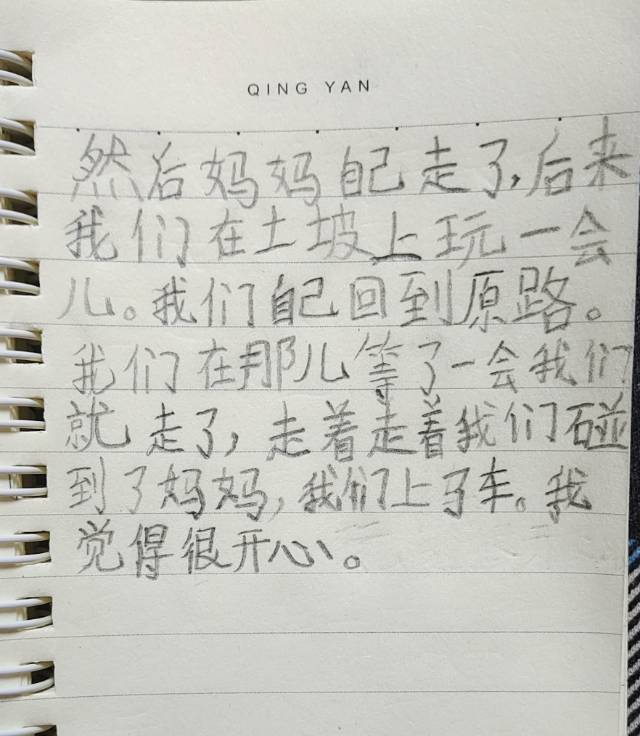 QING YAN
然后妈妈自己走了,后来
我们在土坡上玩一会
儿。我们自己回到原路。
我们在那儿等了一会我们
就走了,走着走着我们碰
到了妈妈,我们上了车。我
觉得很开心。